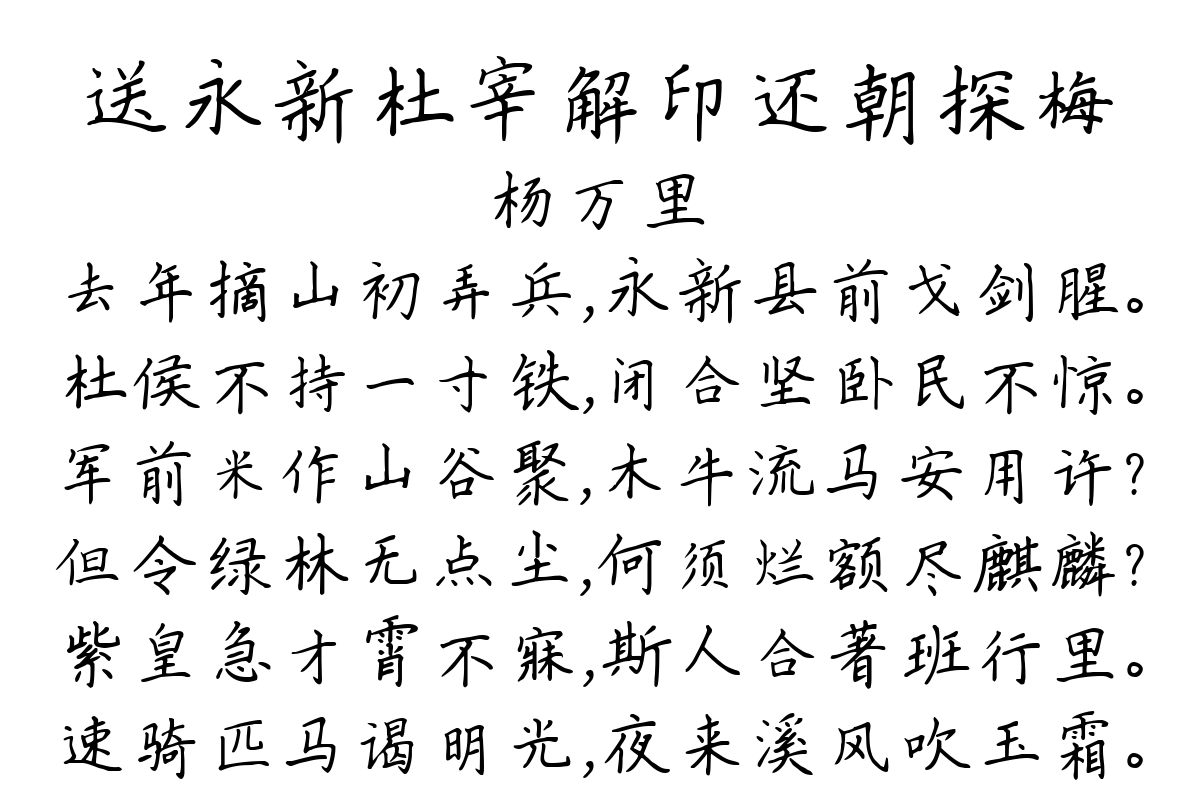 送永新杜宰解印还朝探梅
杨万里
去年摘山初弄兵,永新县前戈剑腥。
杜侯不持一寸铁,闭合坚卧民不惊。
军前米作山谷聚,木牛流马安用许?
但令绿林无点尘,何须烂额尽麒麟?
紫皇急才霄不寐,斯人合著班行里。
速骑匹马谒明光,夜来溪风吹玉霜。